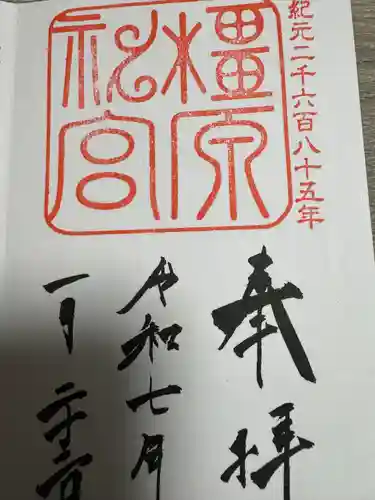 紀元二千六百八十五年
橿原
神宮
奉拝
令和七年
一月二十